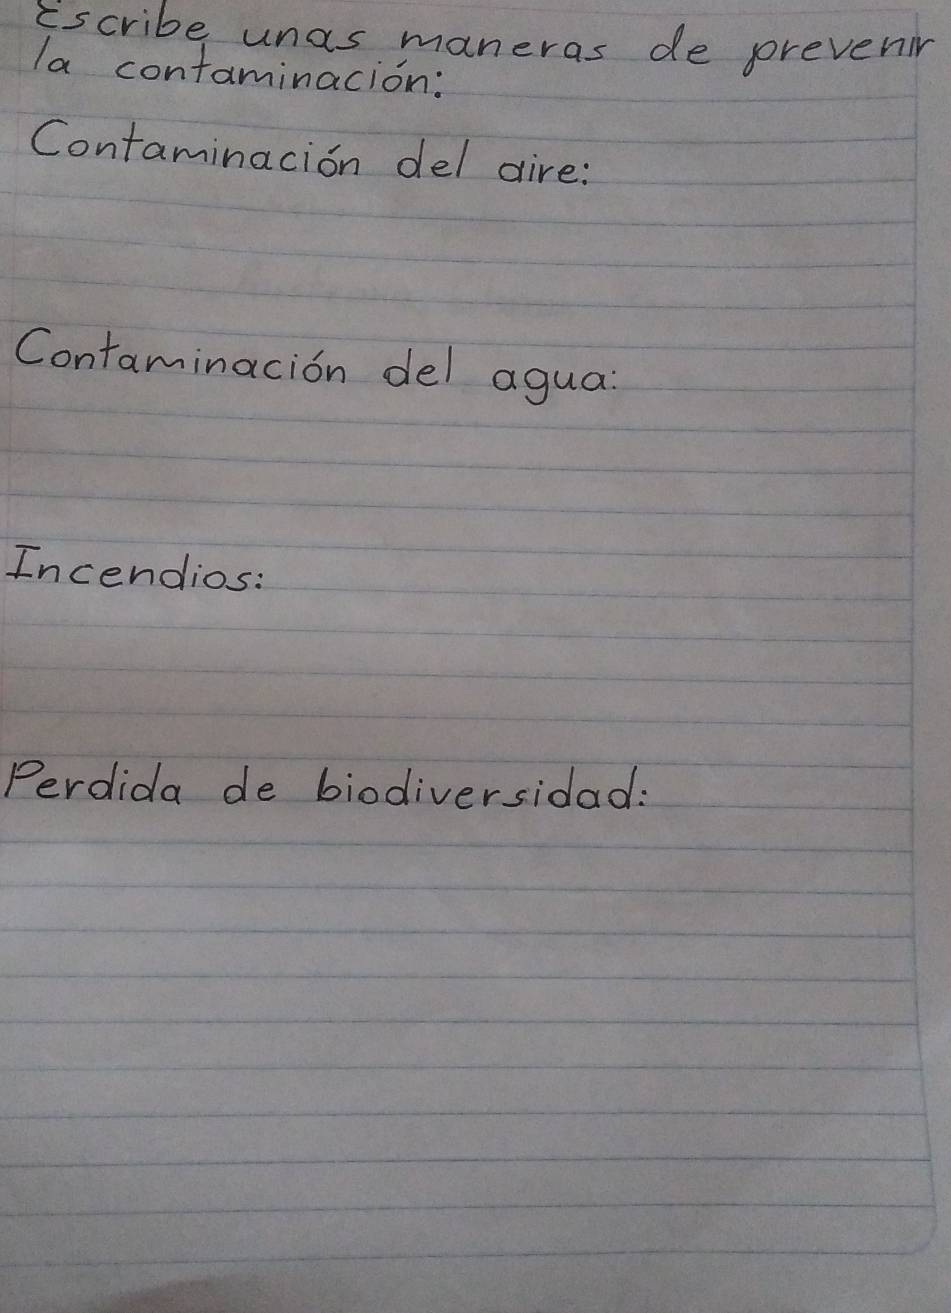 Escribe unas maneras de prevenir
la contaminación:
Contaminación del aire:
Contaminación del agua:
Incendios:
Perdida de biodiversidad: